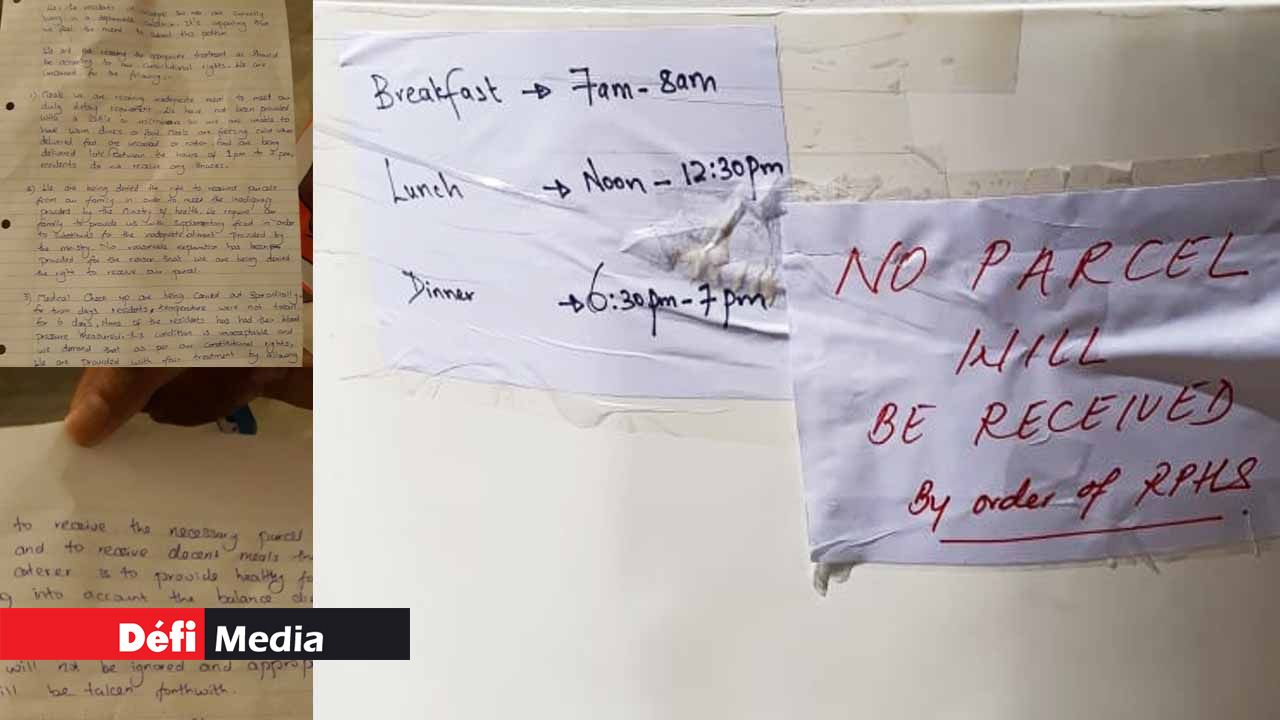 We, the residents of
living in a deplorable condition. It's appalling that
we feel the need to submit this petition
We are not receiving the adequate treatment as should
be according to our constitutional rights. We are
concerned for the following:-
1) Meals we are receiving inadequate meal to meet our
daily dietary requirement. We have not been provided
with a kettle or microwave so we are unable to
have warm drinks or food. Meals are freezing cold when
delivered food are uncooked or rotten food are being
delivered late (between the hours of 1pm to 3pm,
residents do not receive any snacks.
2) We are being denied the right to receive parcels
from our family in order to meet the inadequacy
provided by the Ministry of health. We require our
family to provide us with supplementary food in order
to substitute for the inadequate aliment provided by
the ministry. No reasonable explanation has been
provided for the reason that we are being denied
the right to receive our parcel.
3) Medical Check up are being carried out sporadically.
for two days residents, temperature were not taken
for 5 days. None of the residents has had their blood
pressure measured. This condition is unacceptable and
we demand that as per our constitutional rights,
We are provided with fair treatment by allowing
to receive the necessary parcel
and to receive decent meals
caterer is to provide healthy
into account the balance
will not be ignored and
be taken forthwith.
Défi Media
Breakfast → 7am - 8am
Lunch → Noon - 12:30pm
Dinner → 6:30pm - 7pm
NO PARCEL
WILL
BE RECEIVED
By order of RPHS